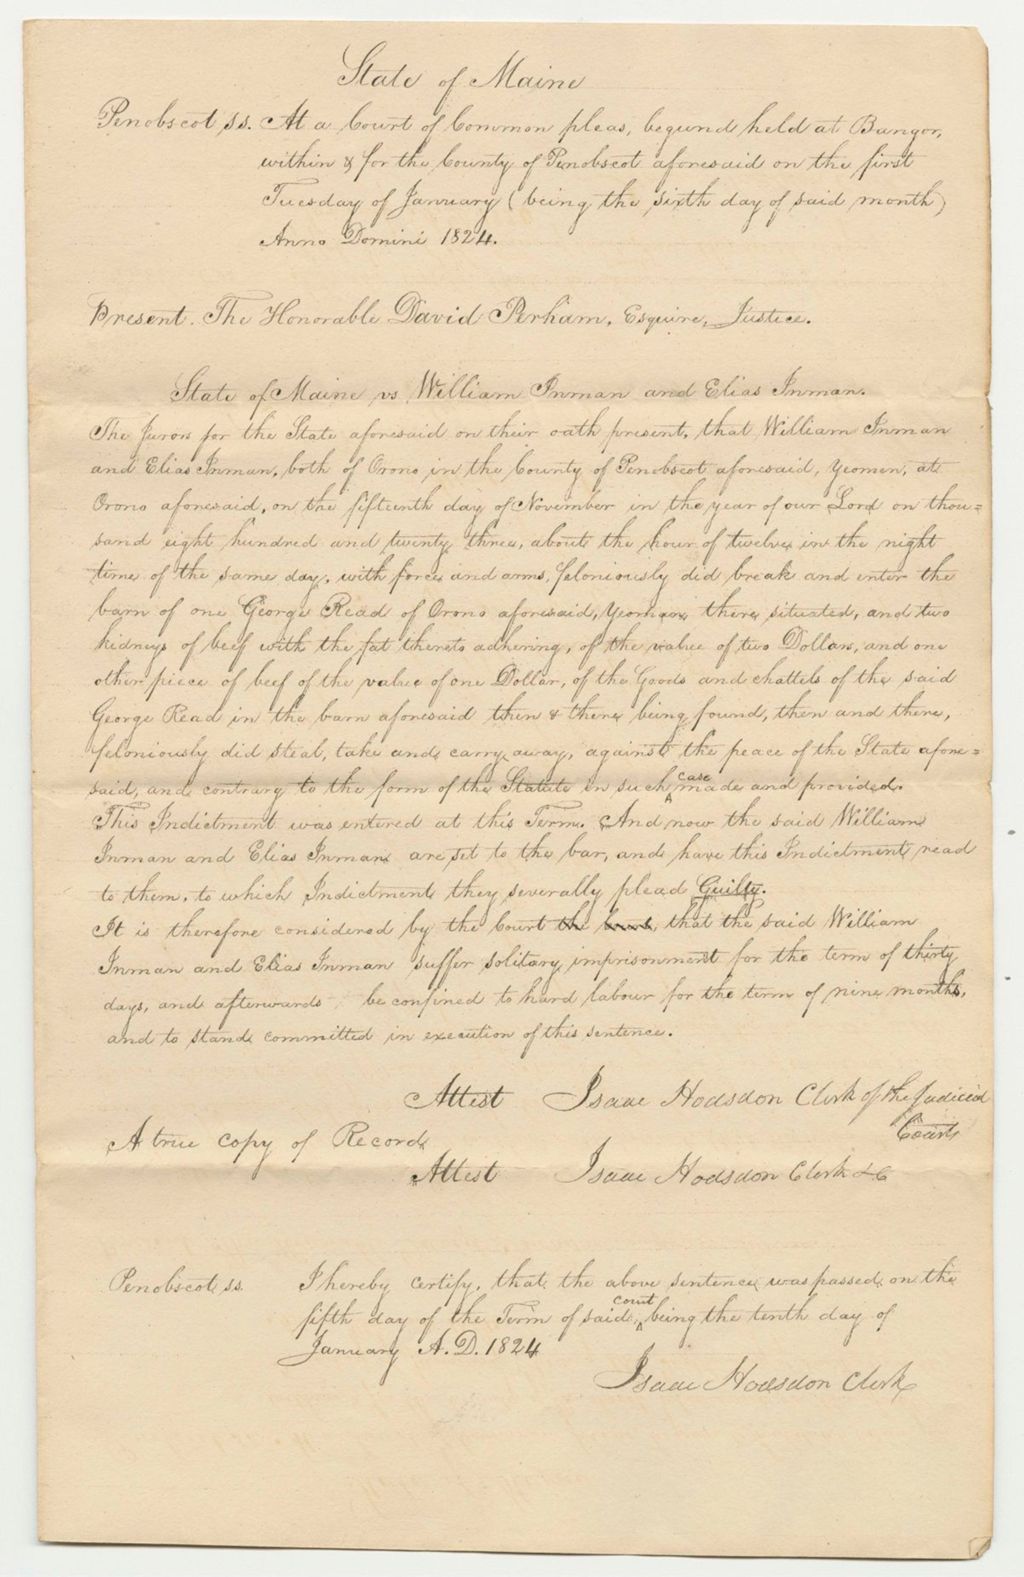 State of Maine
Penobscot ss. At a Court of Common pleas, begun & held at Bangor,
within & for the County of Penobscot aforesaid on the first
Tuesday of January (being the sixth day of said month)
Anno Domini 1824.
Present. The Honorable David Perham, Esquire, Justice.
State of Maine vs William Inman and Elias Inman.
The Jurors for the State aforesaid on their oath present, that William Inman
and Elias Inman, both of Orono in the County of Penobscot aforesaid, Yeomen, at
Orono aforesaid, on the fifteenth day of November in the year of our Lord on thou=
sand eight hundred and twenty three, about the hour of twelve in the night
time of the same day, with force and arms, feloniously did break and enter the
barn of one George Read of Orono aforesaid, Yeoman, there situated, and two
kidneys of beef with the fat thereto adhering, of the value of two Dollars, and one
other piece of beef of the value of one Dollar, of the Goods and chattels of the said
George Read in the barn aforesaid then & there being found, then and there,
feloniously did steal, take and carry away, against the peace of the State afore=
said, and contrary to the form of the Statute in such case made and provided.
This Indictment was entered at this Term. And now the said William
Inman and Elias Inman are set to the bar, and have this Indictment read
to them, to which Indictment they severally plead Guilty.
It is therefore considered by the Court the that the said William
Inman and Elias Inman suffer solitary imprisonment for the term of thirty
days, and afterwards be confined to hard labour for the term of nine months,
and to stand committed in execution of this sentence.
Attest Isaac Hodsdon Clerk of the Judicial
Courts
A true copy of Record
Attest Isaac Hodsdon Clerk &c
Penobscot ss. I hereby certify, that the above sentence was passed on the
fifth day of the Term of said court being the tenth day of
January A.D. 1824
Isaac Hodsdon Clerk